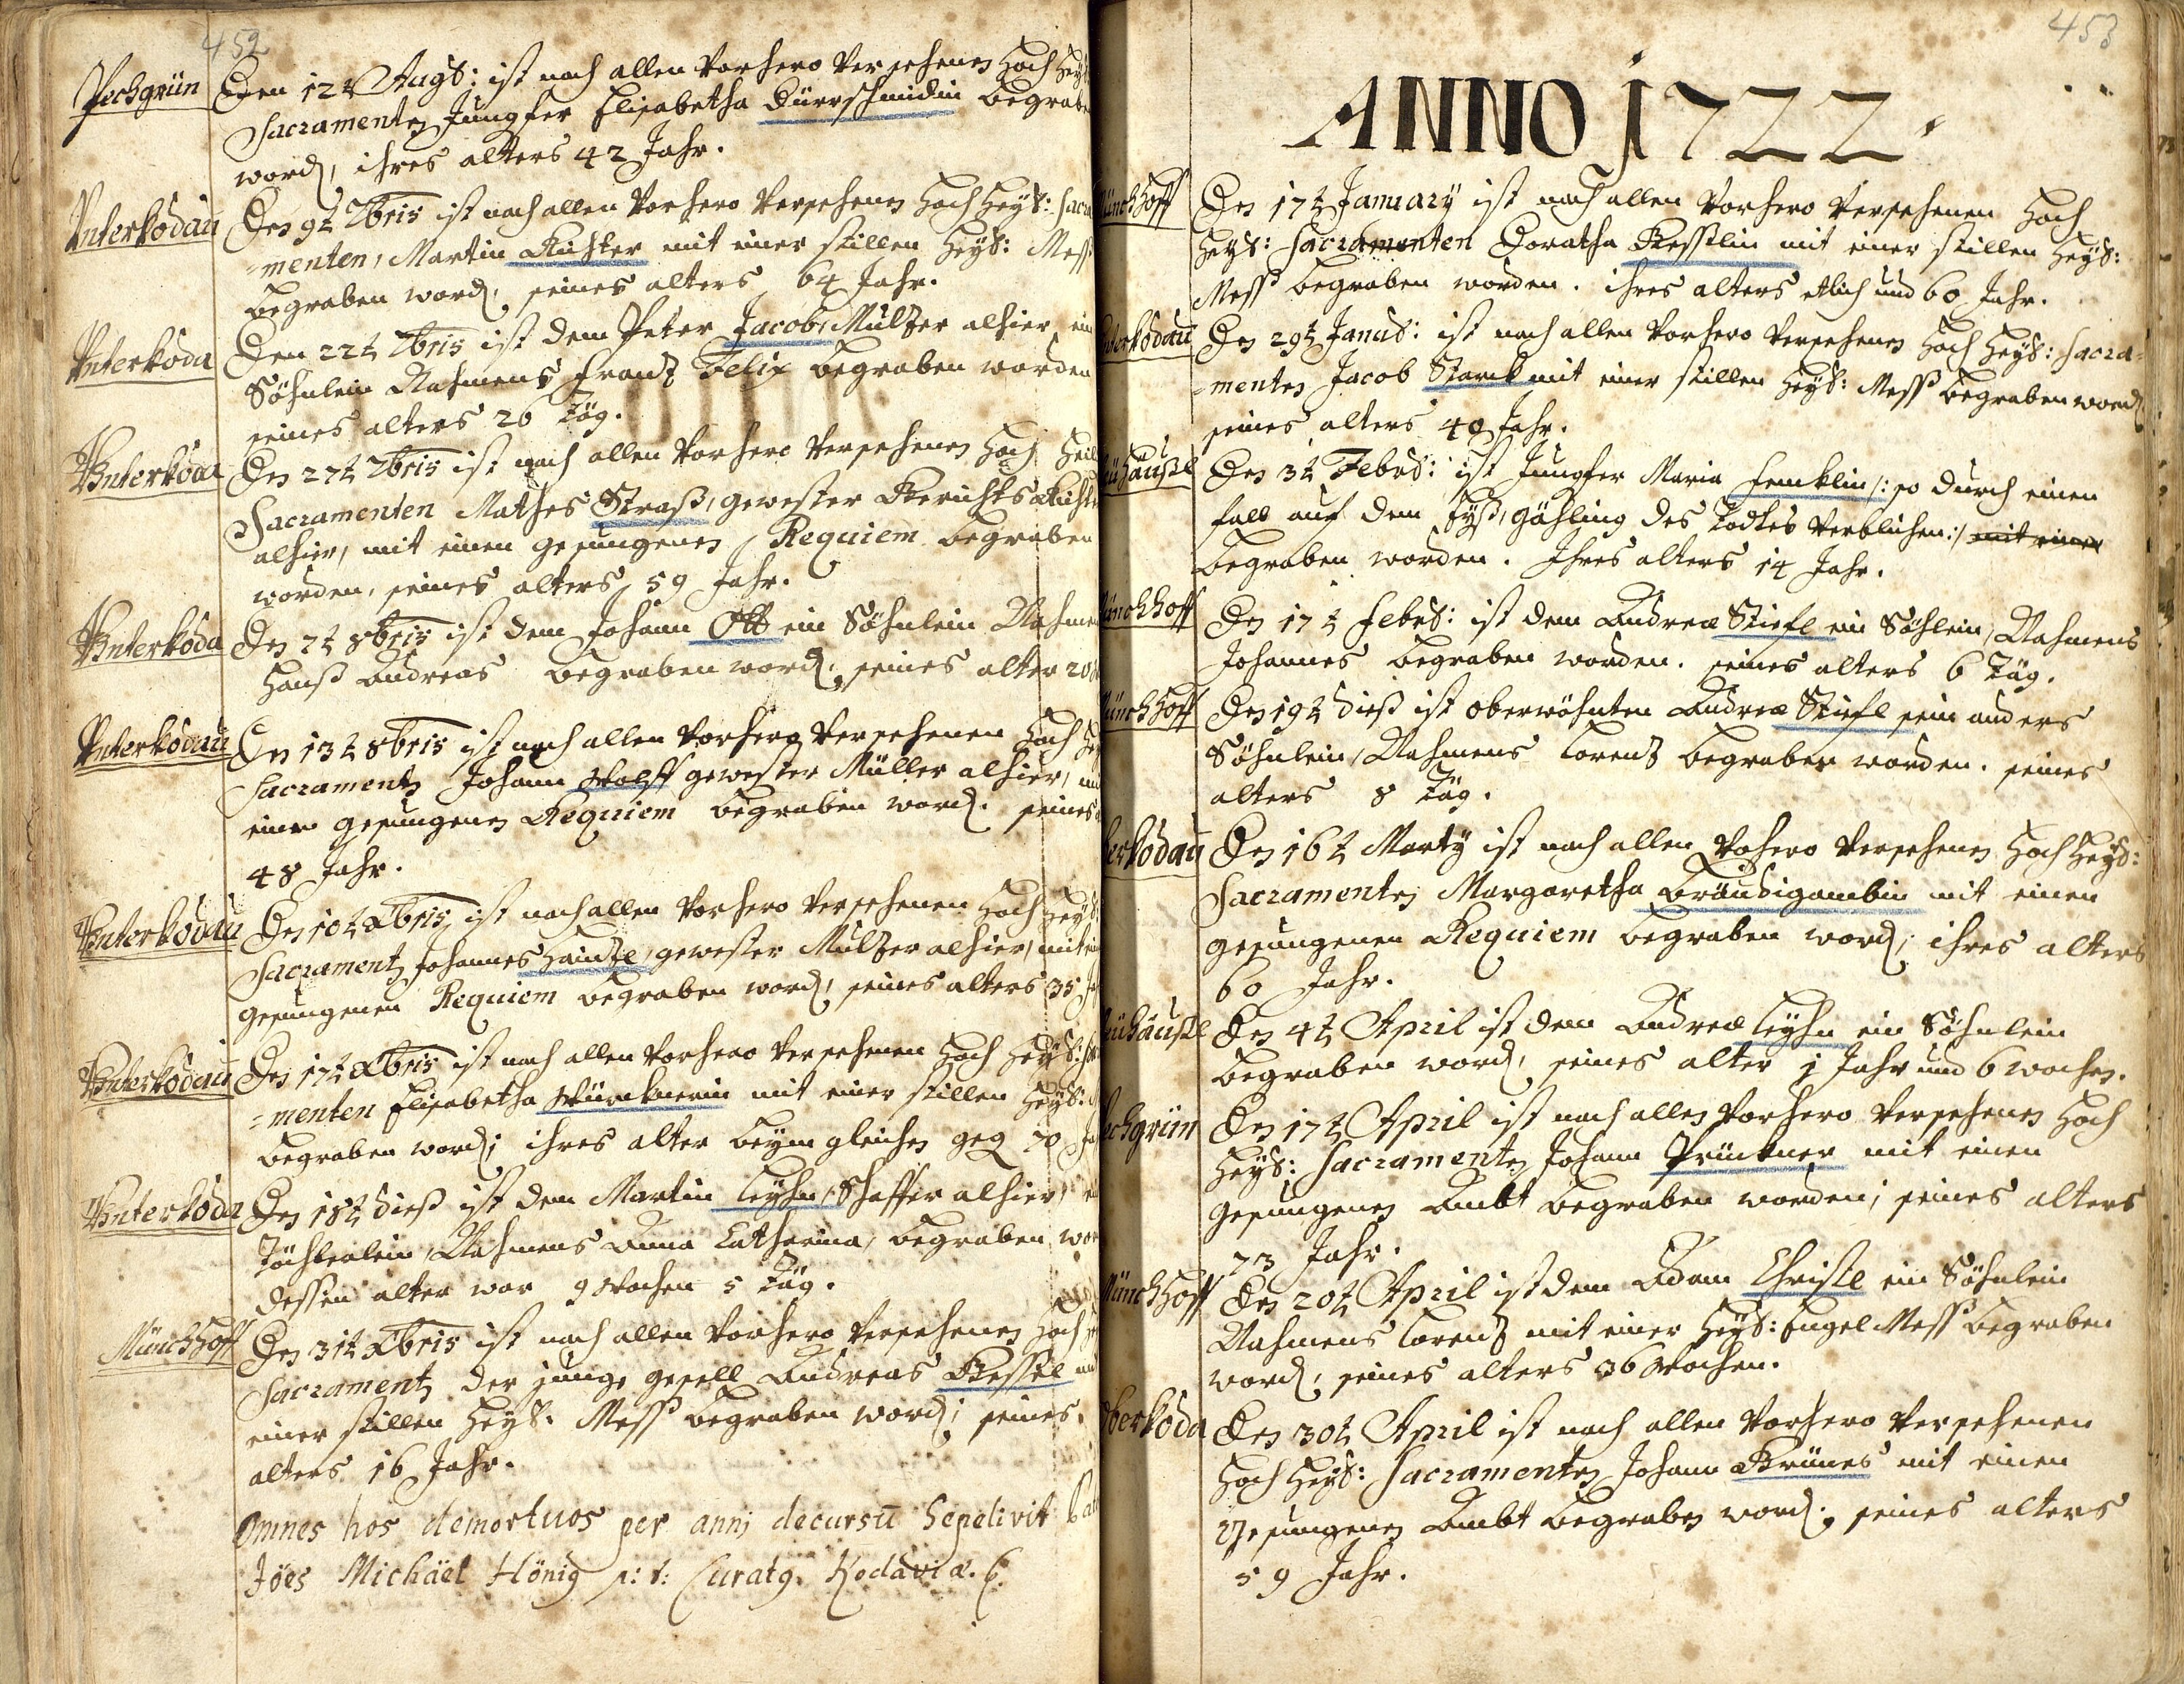 452
Pechgrün
Den 12t Augs: ist nach allen vorhero versehenen Hoch Heyl
Sacramenten Jungfer Elisabetha Dürrschmidin begraben
word, ihres alters 42 Jahr.
Unterkodau
Den 9t 7bris ist nach allen vorhero versehenen Hoch Heyl: Sacra
=menten, Martin Richter mit einer stillen Heyl: Mess
begraben word, seines alters 64 Jahr.
Unterkoda
Den 22t 7bris ist dem Peter Jacob, Mulzer alhier ein
Söhnlein Nahmens Frantz Felix begraben worden
seines alters 26 täg.
Unterkoda
Den 27t 7bris ist nach allen vorhero versehenen Hoch Heil
Sacramenten Mathes Straß, gewester Gerichts Richter
alhier, mit einen gesungenen Requiem begraben
worden, seines alters 59 Jahr.
Unterkoda
Den 2t 8bris ist dem Johann Ott ein Söhnlein Nahmen
Hanß Andreas begraben word, seines alter 20
Unterkodau
Den 13t 8bris ist nach allen vorhero versehenen Hoch Hey
Sacramenten Johann Wolff gewester Müller alhier, mit
einen gesungenen Requiem begraben word. seines
48 Jahr.
Unterkodau
Den 10t Xbris, ist nach allen vorhero versehenen Hoch Heyl
Sacramenten Johannes Haintzl, gewester Mulzer alhier, mit
gesungenen Requiem begraben word, seines alters 35
Unterkodau
Den 17t Xbris ist nach allen vorhero versehenen Hoch Heyl:
=menten Elisabetha Würcknerin mit einer stillen Heyl:
begraben word; ihres alter beym gleichen geg 70
Unterkoda
Den 18t dieß ist dem Martin Leyhn, Schaffer alhier,
Töchterlein, Nahmens Anna Catharina, begraben wor
dessen alter war 9 Wochen 5 täg.
Münchhoff
Den 31t Xbris ist nach allen vorhero versehenen Hoch
Sacramenten der junge gesell Andreas Kessel mit
einer stillen Heyl: Mess begraben word; seines
alters 16 Jahr.
Omnes hos demortuos per anni decursū Sepelivit
Jões Michäel Hönig p: t: Curatg. Kodaviæ.
453
ANNO 1722.
ünchhoff
Den 17t January ist nach allen vorhero versehenen Hoch
Heyl: Sacramenten Doratha Kesslin mit einer stillen Heyl:
Mess begraben worden. ihres alters etlich und 60 Jahr.
terkodau
Den 29t Janus: ist nach allen vorhero versehenen Hoch Heyl: Sacra=
=menten Jacob Starck mit einer stillen Heyl: Mess begraben word
seines alters 40 Jahr.
uhäusl
Den 3t Febrs: ist Jungfer Maria Lenncklin /: so durch einen
fall auf dem Eyß, gähling des Todtes verblichen :/ mit einer
begraben worden. Ihres alters 14 Jahr.
ünchhoff
Den 17t Febrs: ist dem Andreæ Stiefl ein Söhlein, Nahmens
Johannes begraben worden. seines alters 6 täg.
ünchhoff
Den 19t dieß ist oberwöhnten Andreæ Stiefl sein anders
Söhnlein, Nahmens Lorentz begraben worden. seines
alters 8 täg.
erkodau
Den 16t Marty ist nach allen vohero versehenen Hoch Heyl:
Sacramenten Margaretha Bräudigambin mit einen
gesungenen Requiem begraben word; ihres alters
60 Jahr.
euhäusl
Den 4t April ist dem Andreæ Leyhn ein Söhnlein
begraben word, seines alter 1 Jahr und 6 wochen.
echgrün
Den 17t April ist nach allen vorhero versehenen Hoch
Heyl: Sacramenten Johann Prückner mit einen
gesungenen Ambt begraben worden; seines alters
73 Jahr.
Münchhoff
Den 20t April ist dem Adam Christl ein Söhnlein
Nahmens Lorentz mit einer Heyl: Engel Mess begraben
word, seines alters 36 Wochen.
berkoda
Den 30t April ist nach allen vorhero versehenen
Hoch Heyl: Sacramenten Johann Brünes mit einen
Gesungenen Ambt begraben word, seines alters
59 Jahr.